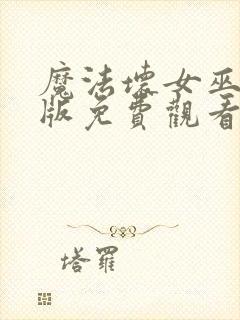 魔法壞女巫
版免費觀看
塔羅